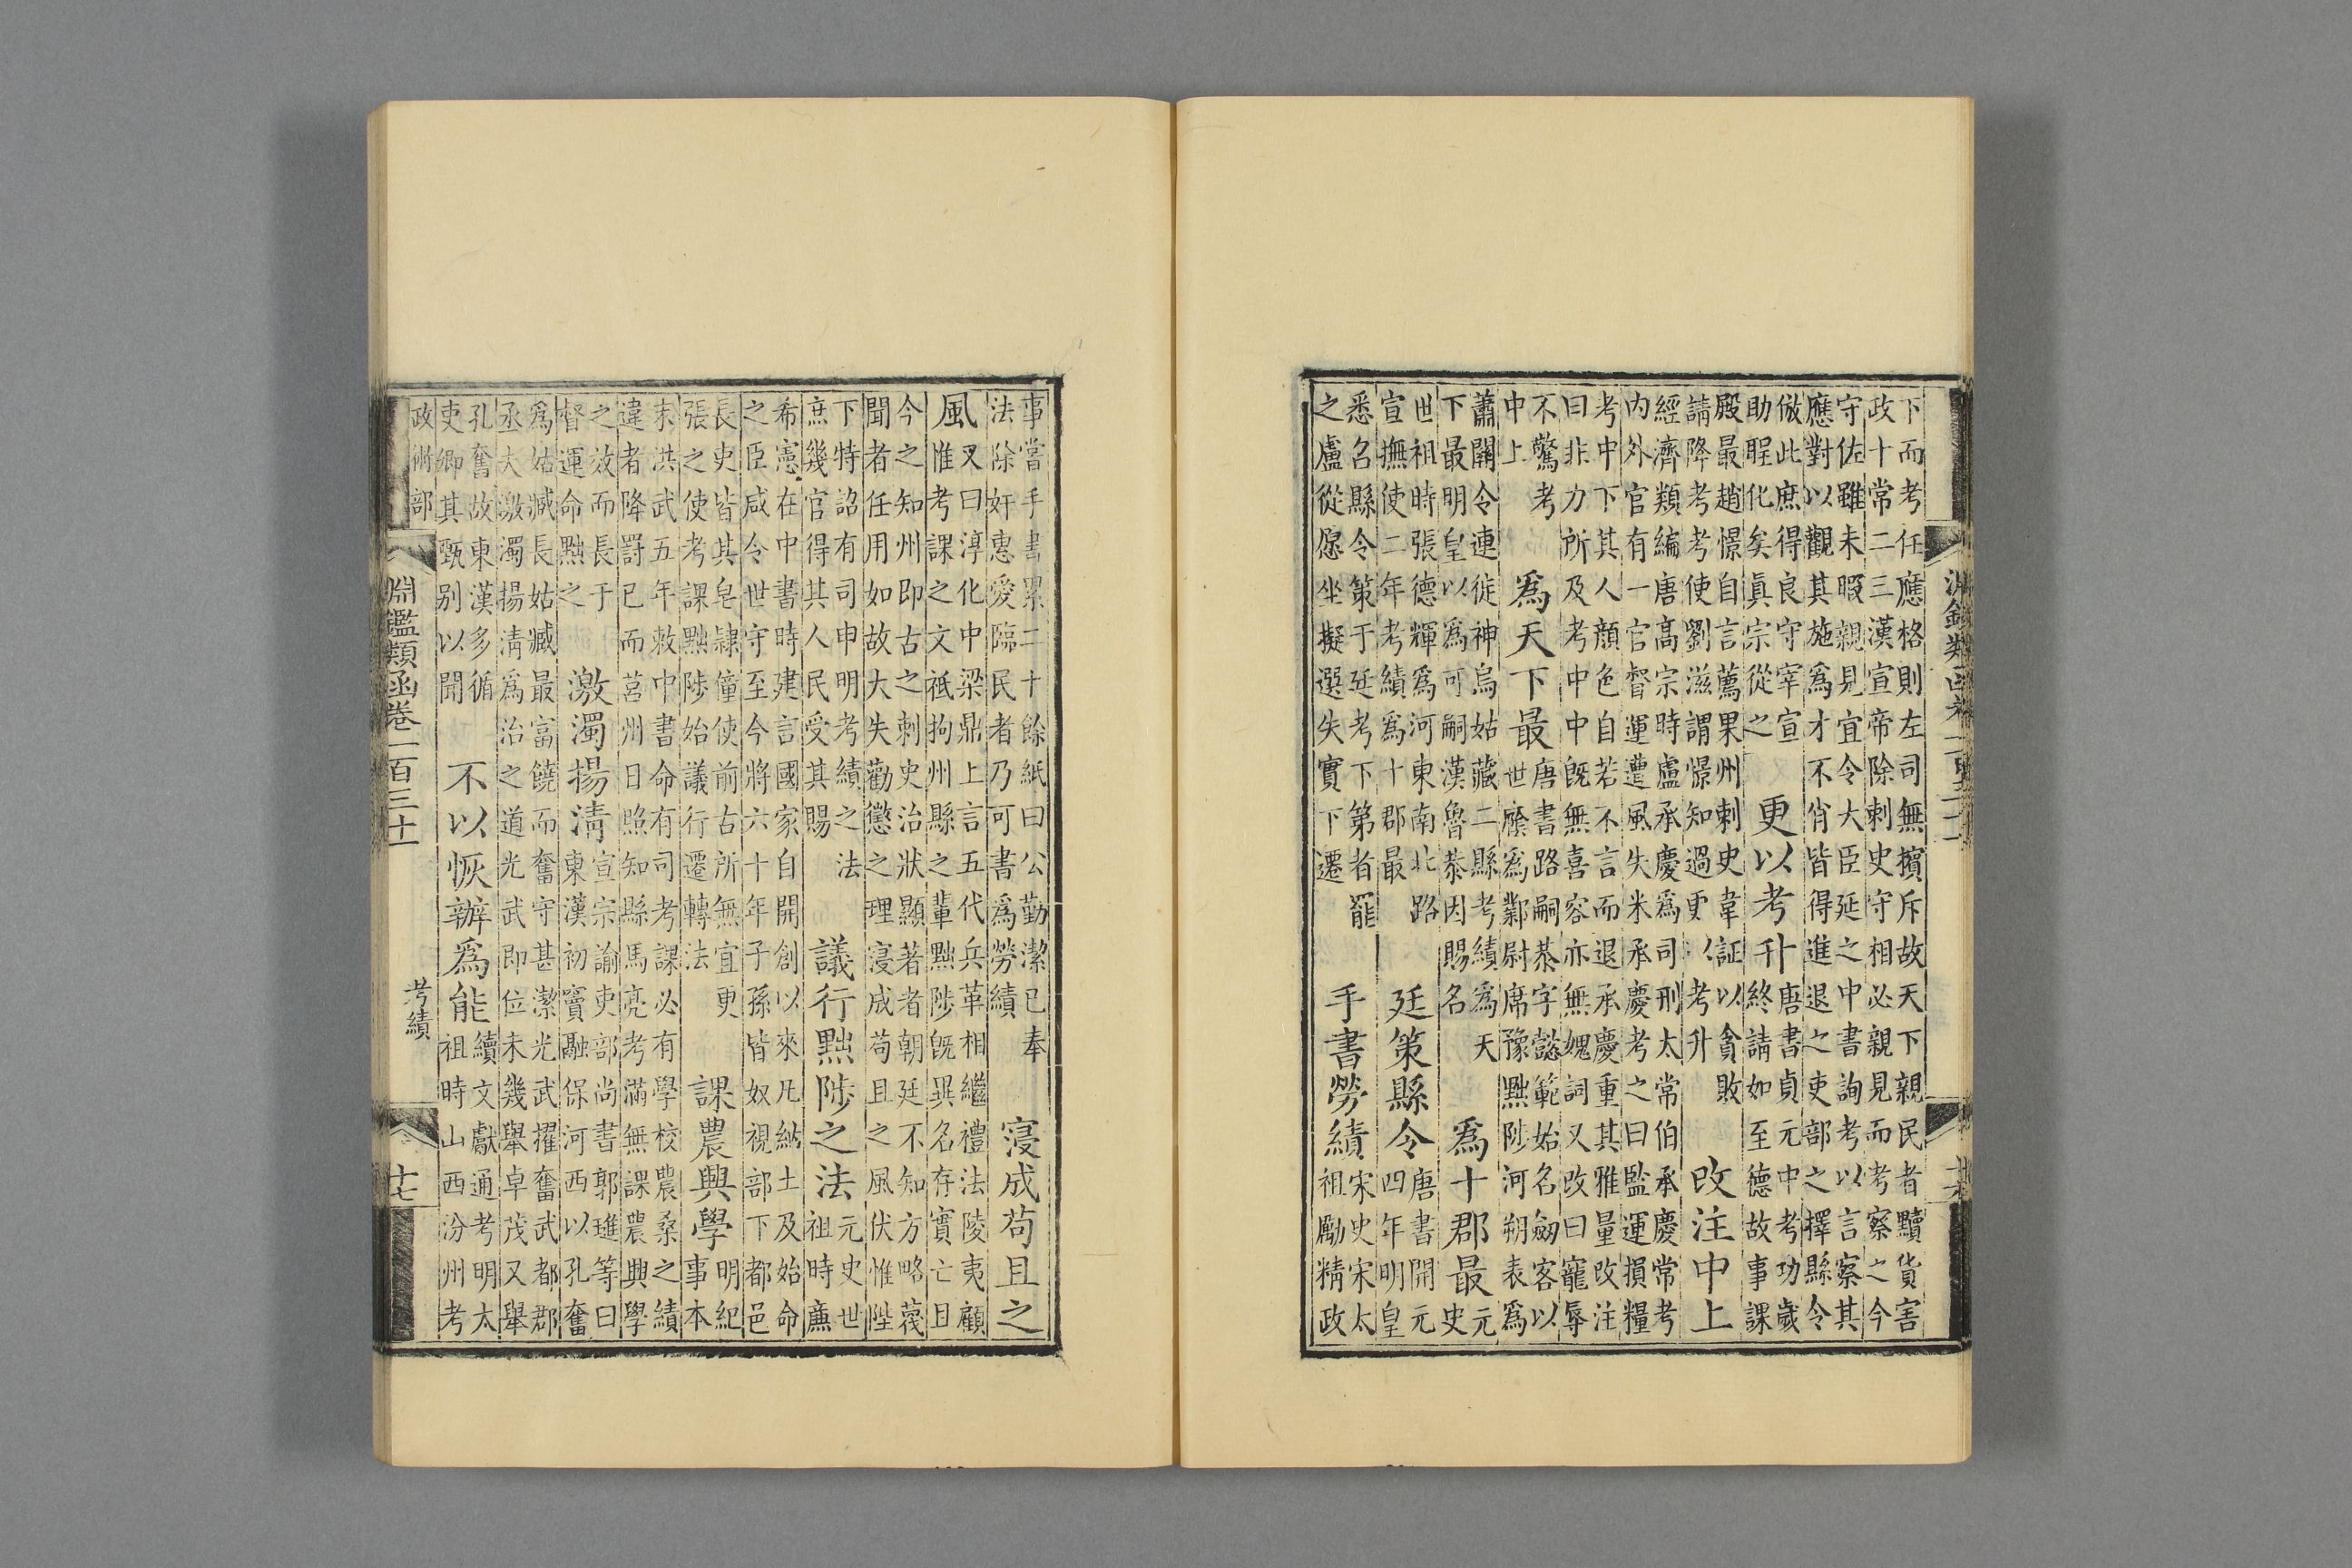 下而考任應格則左司無擯斥故天下親民者黷貨害
政十常二三漢宣帝除刺史守相必親見而考察之今
守佐雖未暇親見宜令大臣延之中書詢考以言察其
應對以觀其施爲才不肖皆得進退之吏部之擇縣令
倣此庶得良守宰宣
助聖化矣眞宗從之
更以考升
唐書貞元中考功歲
終請如至德故事課
殿最趙憬自言薦果州刺史韋証以貪敗
請降考考使劉滋謂憬知過更以考升
改注中上
經濟類編唐高宗時盧承慶爲司刑太常伯承慶常考
內外官有一官督運遭風失米承慶考之曰監運損糧
考中下其人顔色自若不言而退承慶重其雅量改注
曰非力所及考中中旣無喜容亦無媿詞又改曰寵辱
不驚考
中上
爲天下最
唐書路嗣恭字懿範始名劒客以
世廕爲鄴尉席豫黜陟河朔表爲
蕭關令連徙神烏姑藏二縣考績爲天
下最明皇以爲可嗣漢魯恭因賜名
爲十郡最
元
史
世祖時張德輝爲河東南北路
宣撫使二年考績爲十郡最
廷策縣令
唐書開元
四年明皇
悉召縣令策于廷考下第者罷
之盧從愿坐擬選失實下遷
手書勞績
宋史宋太
祖勵精政
事嘗手書累二十餘紙曰公勤潔已奉
法除奸惠愛臨民者乃可書爲勞績
寖成苟且之
風
又曰淳化中梁鼎上言五代兵革相繼禮法陵夷顧
惟考課之文祇拘州縣之輩黜陟旣異名存實亡且
今之知州即古之刺史治狀顯著者朝廷不知方略蔑
聞者任用如故大失勸懲之理寖成苟且之風伏惟陛
下特詔有司申明考績之法
庶幾官得其人民受其賜
議行黜陟之法
元史世
祖時廉
希憲在中書時建言國家自開創以來凡納土及始命
之臣咸令世守至今將六十年子孫皆奴視部下都邑
長吏皆其皂隸僮使前古所無宜更
張之使考課黜陟始議行遷轉法
課農興學
明紀
事本
末洪武五年敕中書命有司考課必有學校農桑之績
違者降罰已而莒州日照知縣馬亮考滿無課農興學
之效而長于
督運命黜之
激濁揚清
宣宗諭吏部尚書郭璡等曰
東漢初竇融保河西以孔奮
爲姑臧長姑臧最富饒而奮守甚潔光武擢奮武都郡
丞大激濁揚清爲治之道光武即位未幾舉卓茂又舉
孔奮故東漢多循
吏卿其甄别以聞
不以恢辦爲能
續文獻通考明太
祖時山西汾州考
政術部
考績
淵鑑類函卷一百三十一
十七